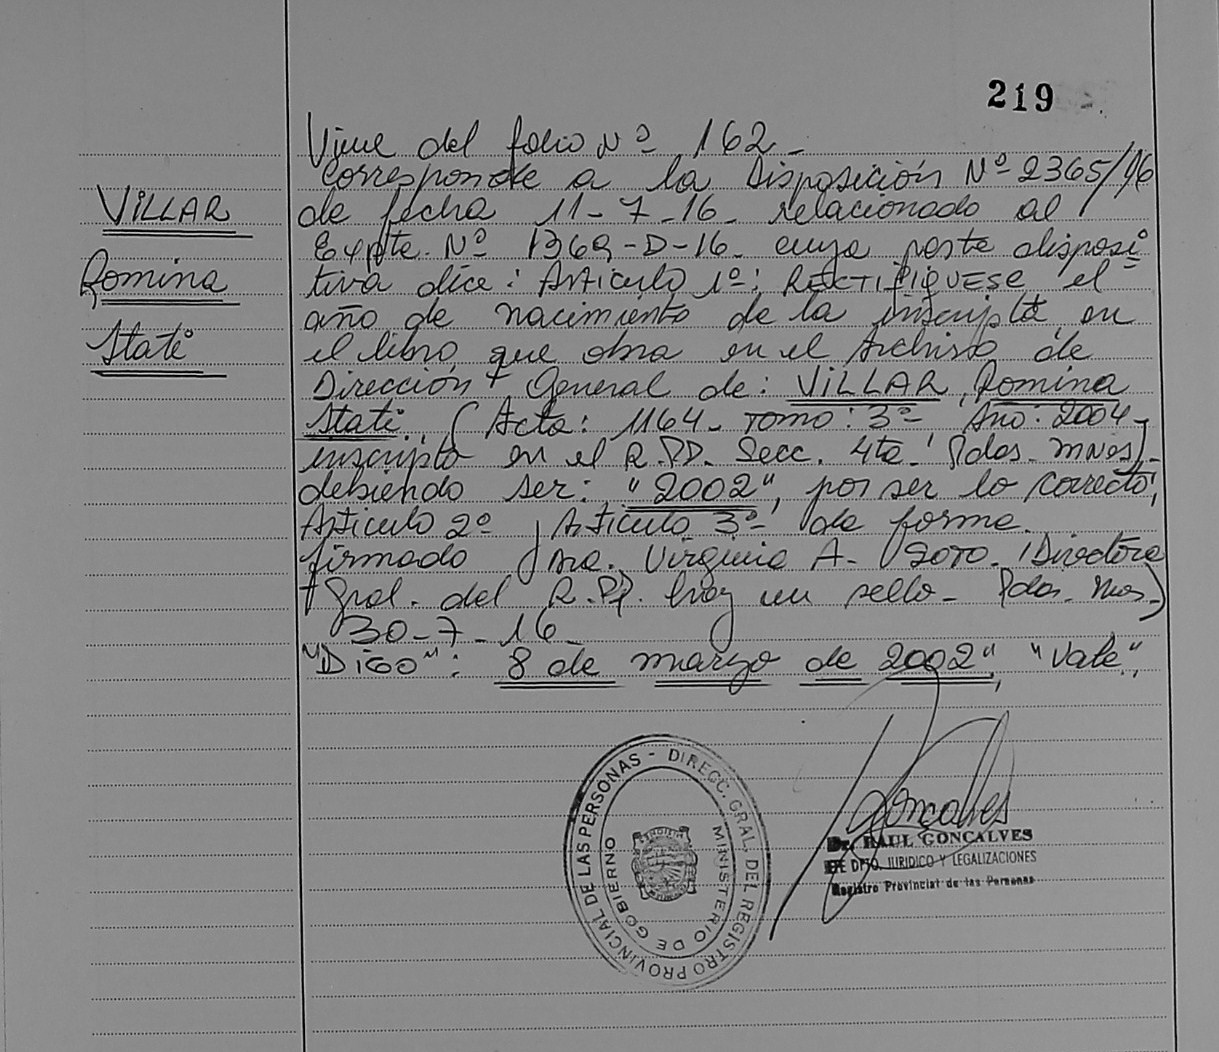 219
Viene del folio Nº 162.-
VILLAR
Romina
Stati
Corresponde a la Disposición Nº 2365/16
de fecha 11-7-16- relacionado al
Expte. Nº 1369-D-16- cuya parte disposi
tiva dice: Artículo 1º: RECTIFIQUESE el
año de nacimiento de la inscripta en
el libro que obra en el Archivo de
Dirección General de: VILLAR, Romina
Stati. (Acta: 1164- Tomo: 3º- Año: 2004-
inscripto en el R.PP. Secc. 4ta. Pdas. Mnes)-
debiendo ser: "2002", por ser lo correcto,
Artículo 2º, Artículo 3º- de forma.
firmado Dra. Virginia A. Soto- (Directora
Gral. del R.PP. hay un sello- Pdas. Mnes.)
30-7-16-
"Digo": 8 de marzo de 2002" "Vale".
DIRECC. GRAL. DEL REGISTRO PROVINCIAL DE LAS PERSONAS -
MINISTERIO DE GOBIERNO
Goncalves
Dr. RAUL GONCALVES
JEFE DPTO. JURIDICO Y LEGALIZACIONES
Registro Provincial de las Personas